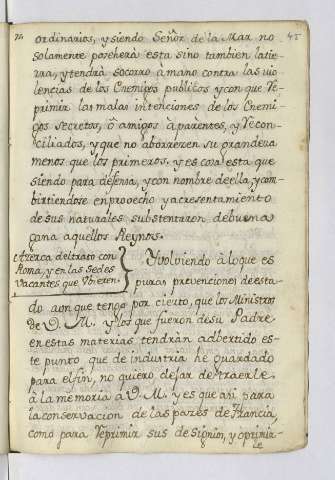 72
45
ordinarios, y siendo Señor de la Mar no
solamente poseherà esta sino tambien la tie-
rra, y tendrà socorro à mano contra las vio-
lencias de los Enemigos publicos y con que Re-
primir las malas intenciones de los Enemi-
gos secretos, ô amigos àparentes, y Recon-
ciliados, y que no aborrezen su grandeza
menos que los primeros, y es cosa esta que
siendo para defensa, y con nombre de ella, y com-
birtiendose en provecho y acresentamiento
de sus naturales substentaron de buena
gana aquellos Reynos.
Azerca del trato con
Roma, y en las Sedes
Vacantes que Vbieren.
Y volviendo à lo que es
puras prevenciones de esta-
do aonque tengo por cierto, que los Ministros
de V. M. y los que fueron de su Padre
en estas materias tendràn adbertido es-
te punto que de industria he guardado
para el fin, no quiero dejar de traerle
à la memoria a V. M. y es que asi para
la conservacion de las pazes de Francia,
como para Reprimir sus designios, y oprimir-
le